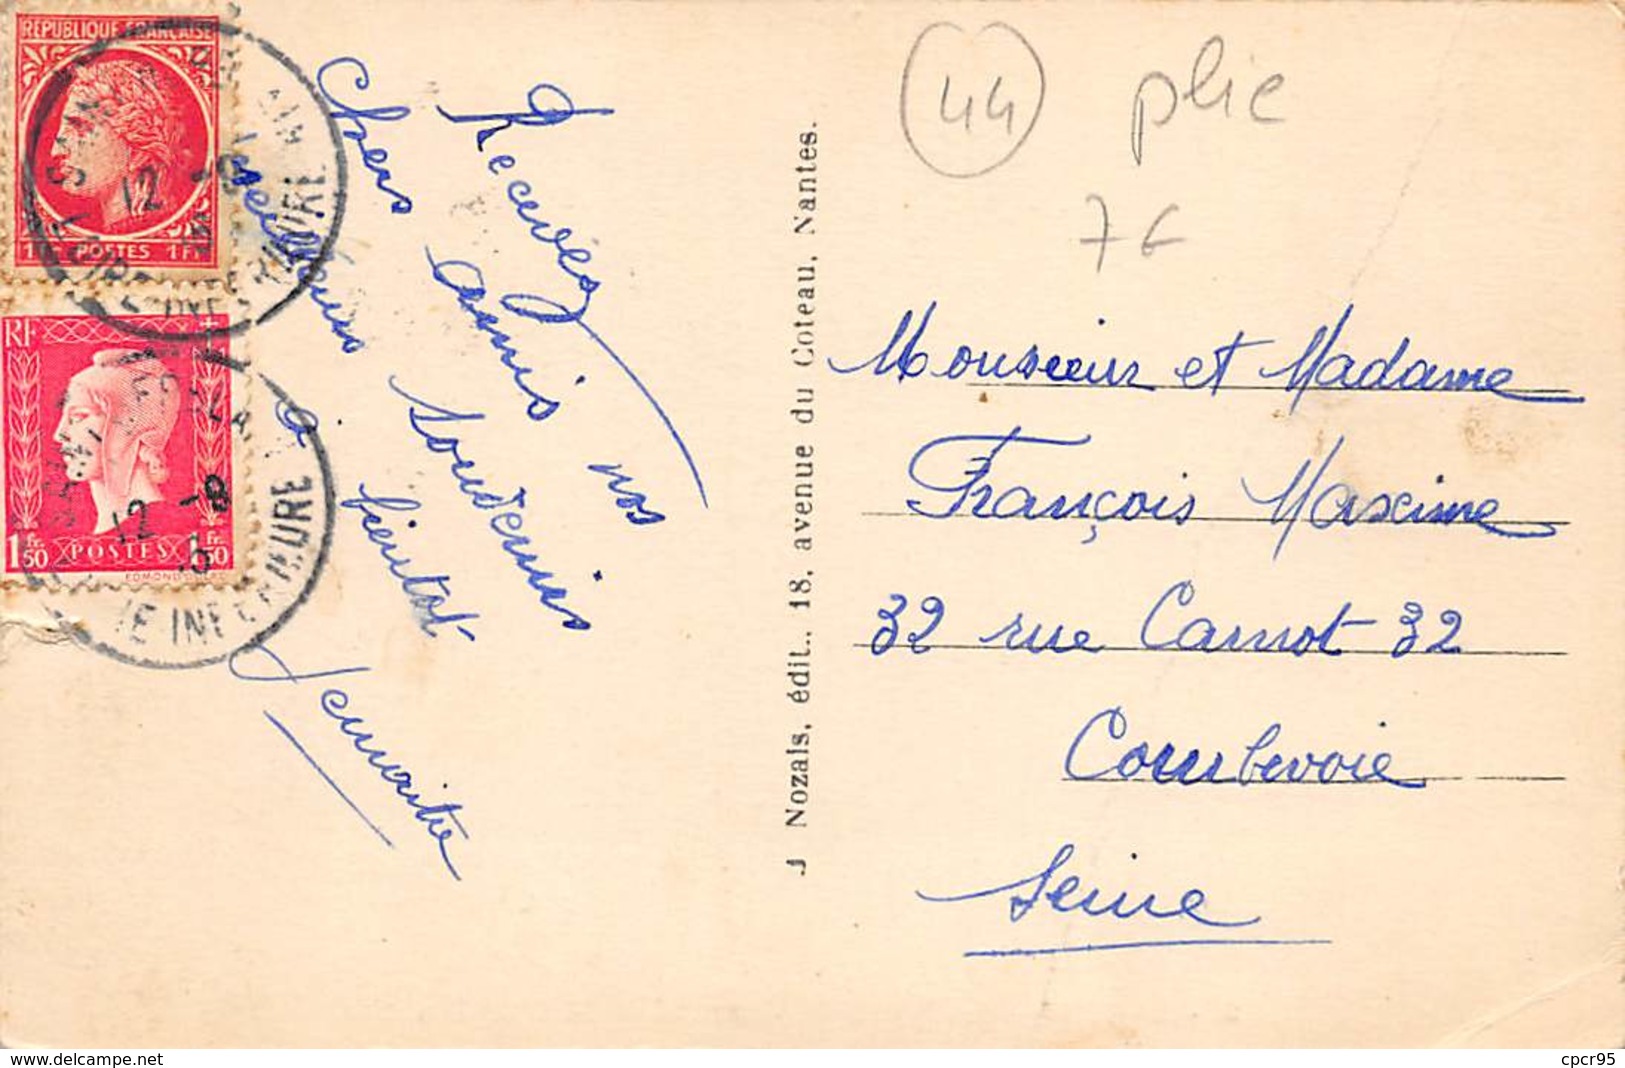 RÉPUBLIQUE FRANÇAISE
POSTES 1FR
RF
1Fr.50 POSTES 1Fr.50
12 -9
12 -8
LOIRE INFERIEURE
IE INFERIEURE
Recevez
chers amis nos
meilleurs souvenirs
à bientot
Lemaitre
J Nozais, édit., 18, avenue du Coteau, Nantes.
44
plie
7€
Monsieur et Madame
François Maxime
32 rue Carnot 32
Courbevoie
Seine
www.delcampe.net
cpcr95